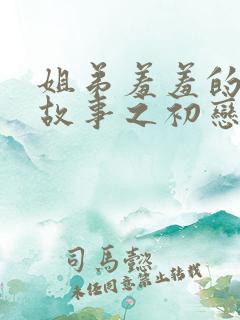 姐弟羞羞的
故事之初戀
司馬懿
未經同意禁止轉載